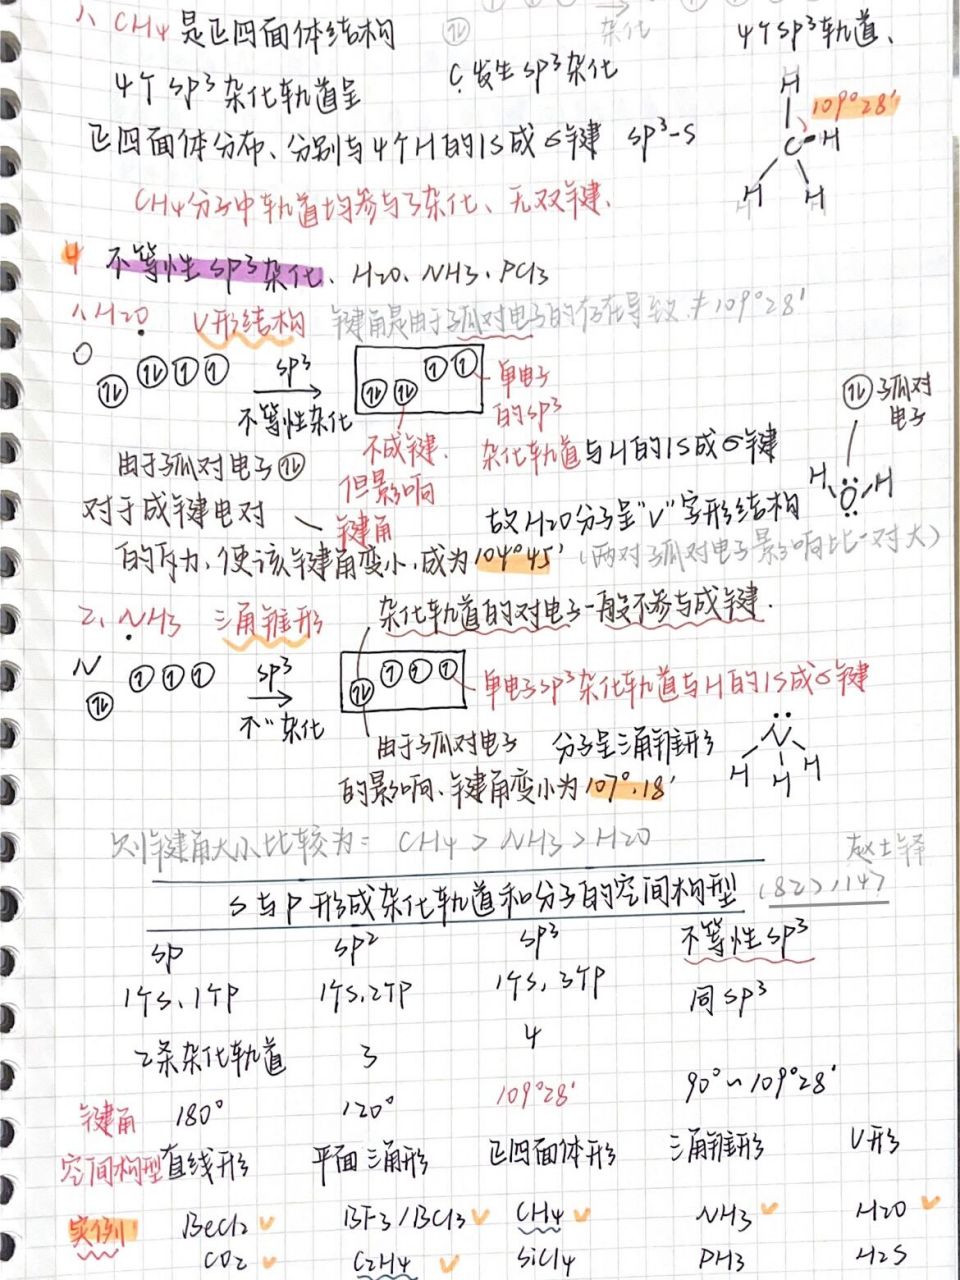 1、CH4是正四面体结构
杂化
4个sp³轨道、
4个sp³杂化轨道呈
C:发生sp³杂化
H
109°28′
正四面体分布、分别与4个H的1S成σ键 sp³-s
C H
H H
CH4分子中轨道均参与了杂化、无双键、
4 不等性sp³杂化、H2O、NH3、PCl3
1、H2O V形结构 键角是由于孤对电子的存在导致≠109°28′
O
sp³
单电子
不等性杂化
的sp³
孤对
电子
不成键、
杂化轨道与H的1S成σ键
由于孤对电子
但影响
对于成键电对
键角
H O H
故H2O分子呈"V"字形结构
的斥力,使该键角变小,成为104°45′ (两对孤对电子影响比一对大)
2、NH3 三角锥形
杂化轨道的对电子一般不参与成键、
N
sp³
单电子sp³杂化轨道与H的1S成σ键
不〃杂化
由于孤对电子 分子呈三角锥形
N
H H H
的影响、键角变小为107°18′
则键角大小比较为= CH4>NH3>H2O
S与P形成杂化轨道和分子的空间构型
(82),147
sp sp² sp³ 不等性sp³
1个S、1个P 1个S,2个P 1个S,3个P 同sp³
2条杂化轨道 3 4
键角 180° 120° 109°28′ 90°~109°28′
空间构型 直线形 平面三角形 正四面体形 三角锥形 V形
实例 BeCl2 BF3/BCl3 CH4 NH3 H2O
CO2 C2H4 SiCl4 PH3 H2S